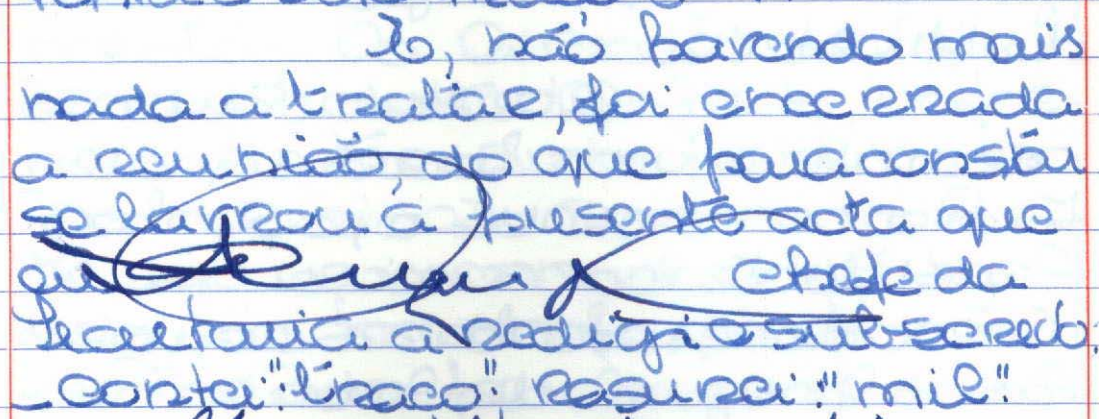 E, não havendo mais
nada a tratar, foi encerrada
a reunião, do que para constar
se lavrou a presente acta que
eu Chefe da
Secretaria a redigi e subscrevo.
_ Cortei: "traço". Rasurei: "mil".